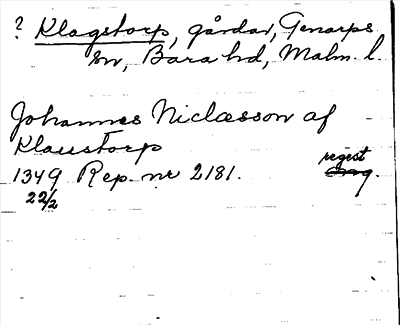 ? Klagstorp, gårdar, Genarps
sn, Bara hd, Malm. l.
Johannes Niclæsson af
Klaustorp
1349 Rep. nr 2181. regest
22/2